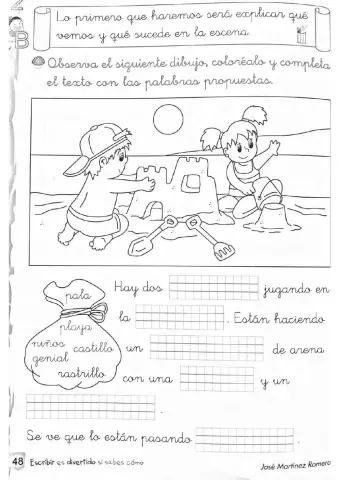 Lo primero que haremos será explicar qué
vemos y qué sucede en la escena.
B
Observa el siguiente dibujo, coloréalo y completa
el texto con las palabras propuestas.
pala
playa
niños castillo
genial
rastrillo
Hay dos jugando en
la . Están haciendo
un de arena
con una y un
Se ve que lo están pasando
48 Escribir es divertido si sabes cómo
José Martínez Romero